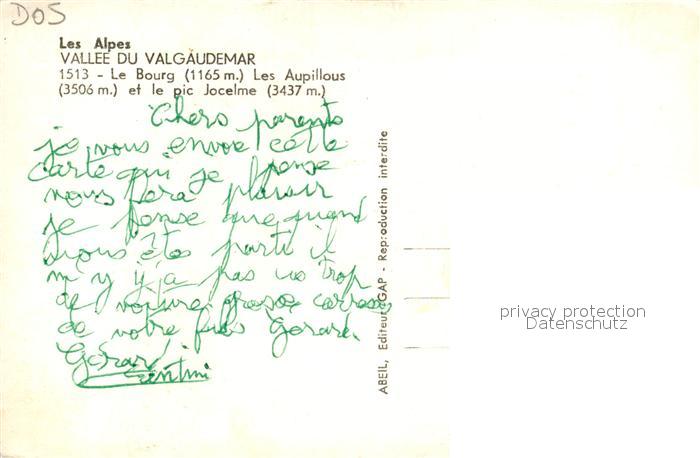 DOS
Les Alpes
VALLEE DU VALGAUDEMAR
1513 - Le Bourg (1165 m.) Les Aupillous
(3506 m.) et le pic Jocelme (3437 m.)
Chers parents
je vous envoe cette
carte qui je pense
vous fera plaisir
je pense que quand
vous êtes parti il
m'y y a pas us trop
de voiture grosse carresse
de votre fils Gerard.
Gérard
ABEIL, Editeur GAP - Reproduction interdite
privacy protection
Datenschutz